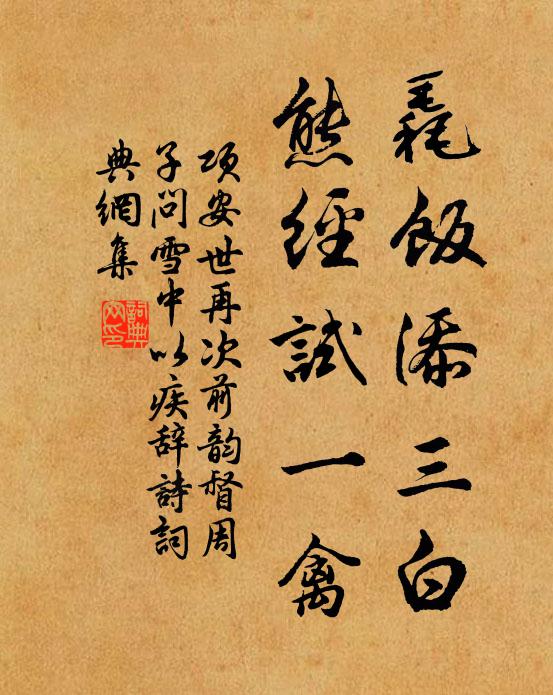 毳飯添三白
熊經試一禽
項安世再次前韵督周
子問雪中以疾辞詩詞
典網集
詞典
网印